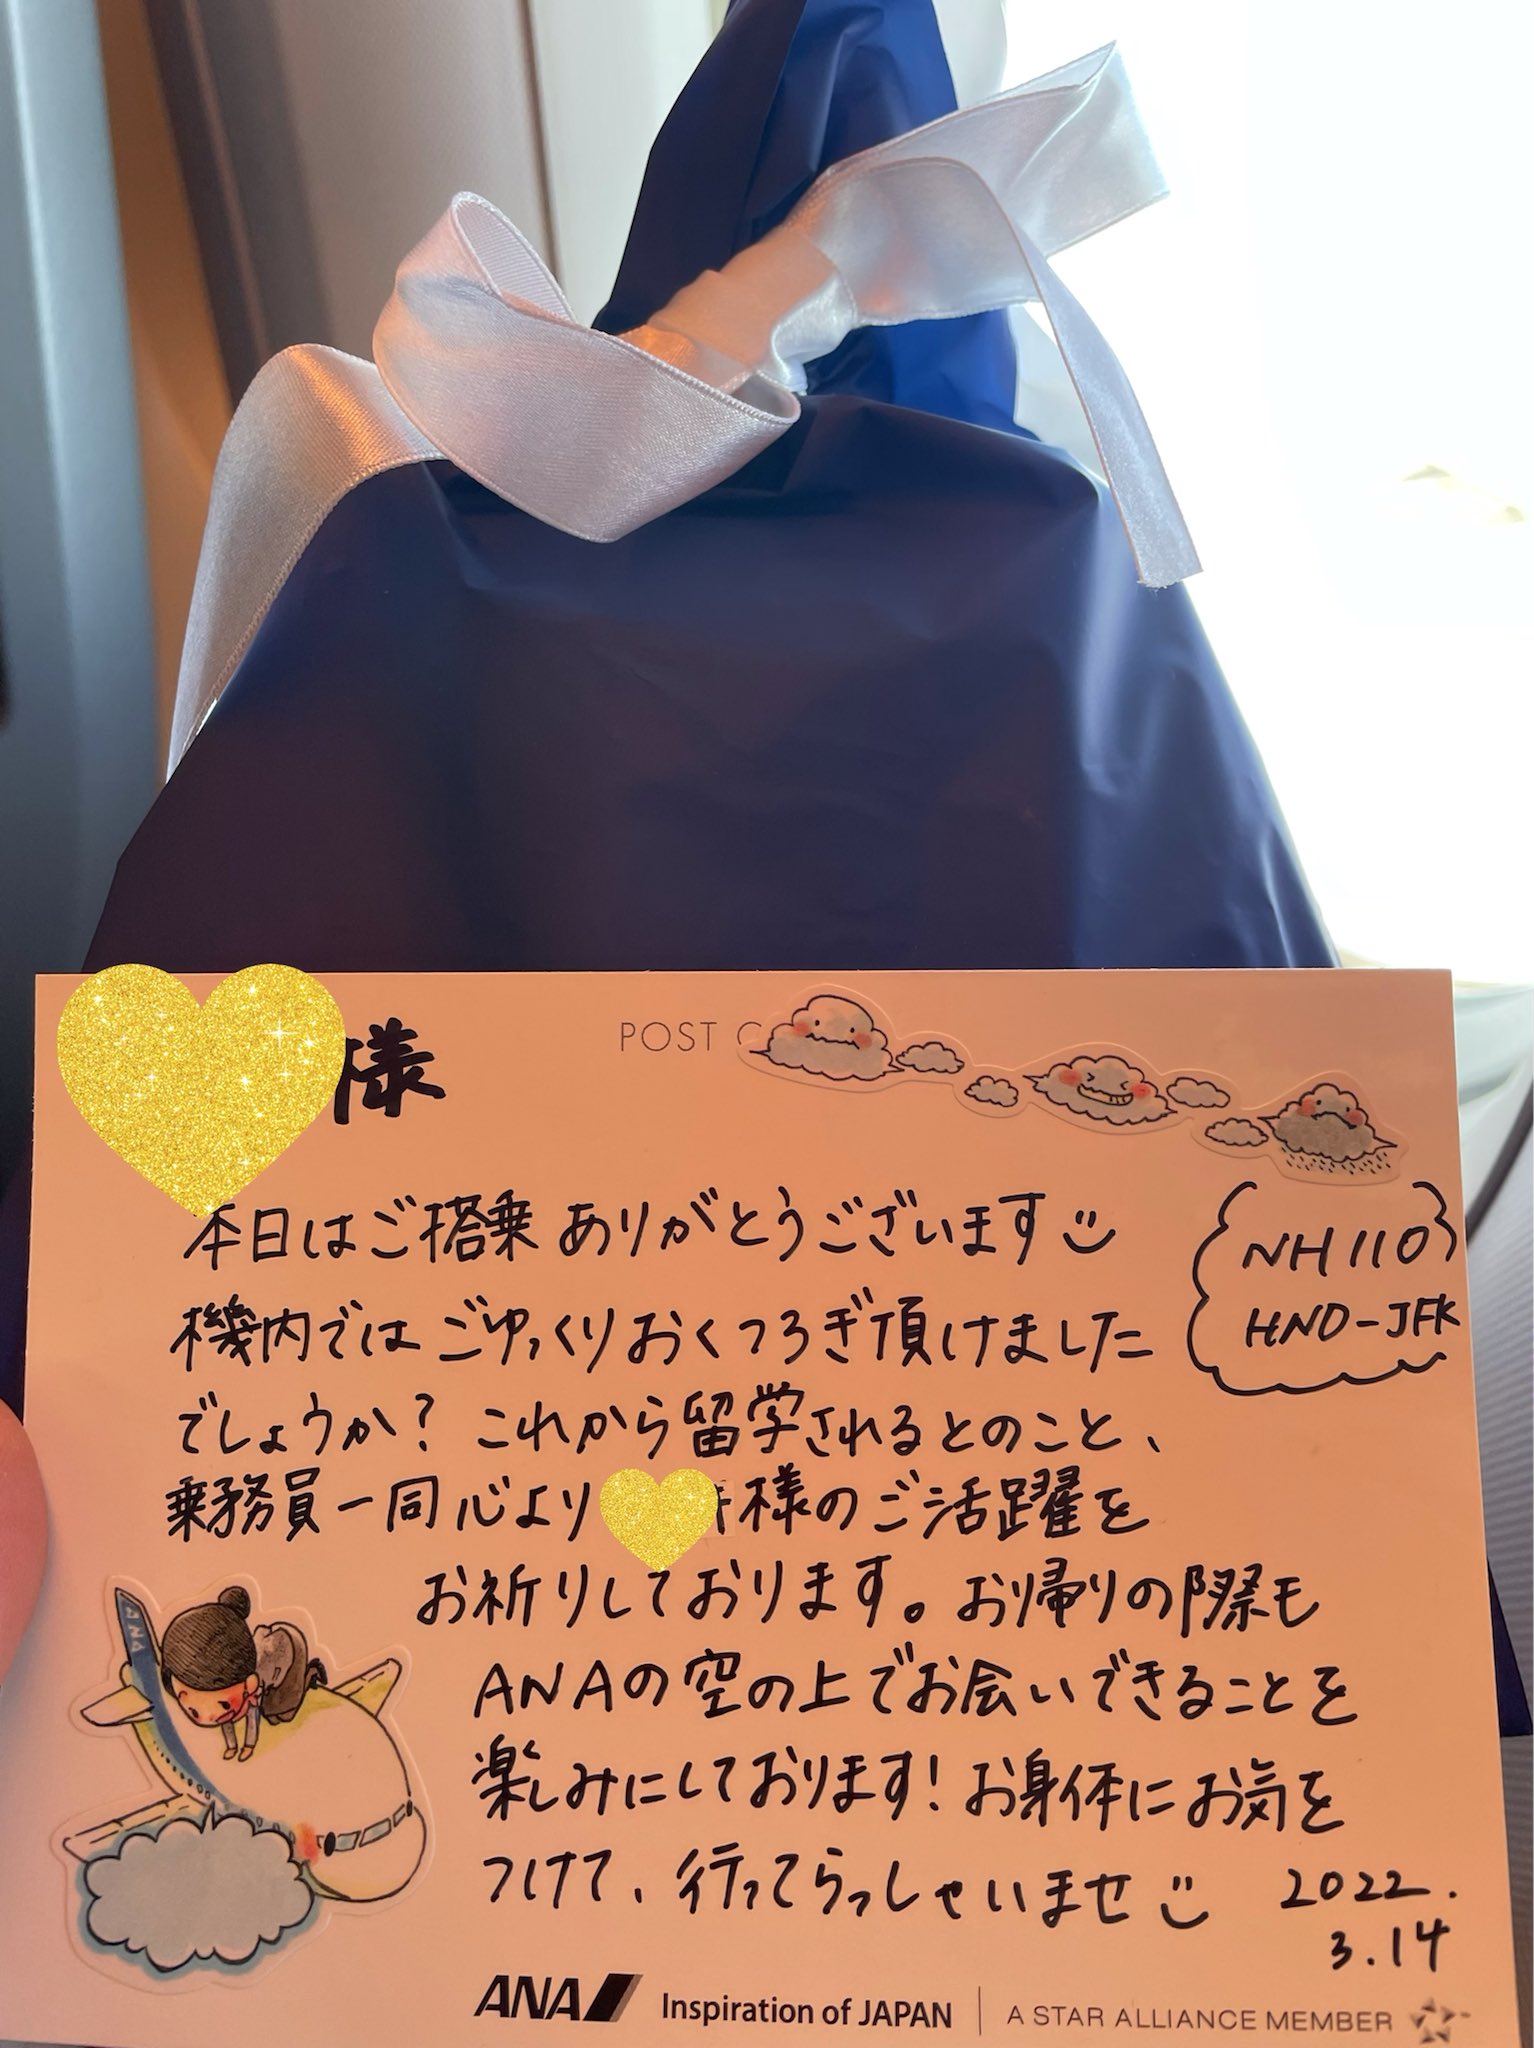 様
POST C
本日はご搭乗ありがとうございます
NH110
HND-JFK
機内ではごゆっくりおくつろぎ頂けました
でしょうか？これから留学されるとのこと、
乗務員一同心より
様のご活躍を
お祈りしております。お帰りの際も
ANAの空の上でお会いできることを
楽しみにしております！お身体にお気を
つけて、行ってらっしゃいませ
2022.
3.14
ANA
ANA Inspiration of JAPAN
A STAR ALLIANCE MEMBER